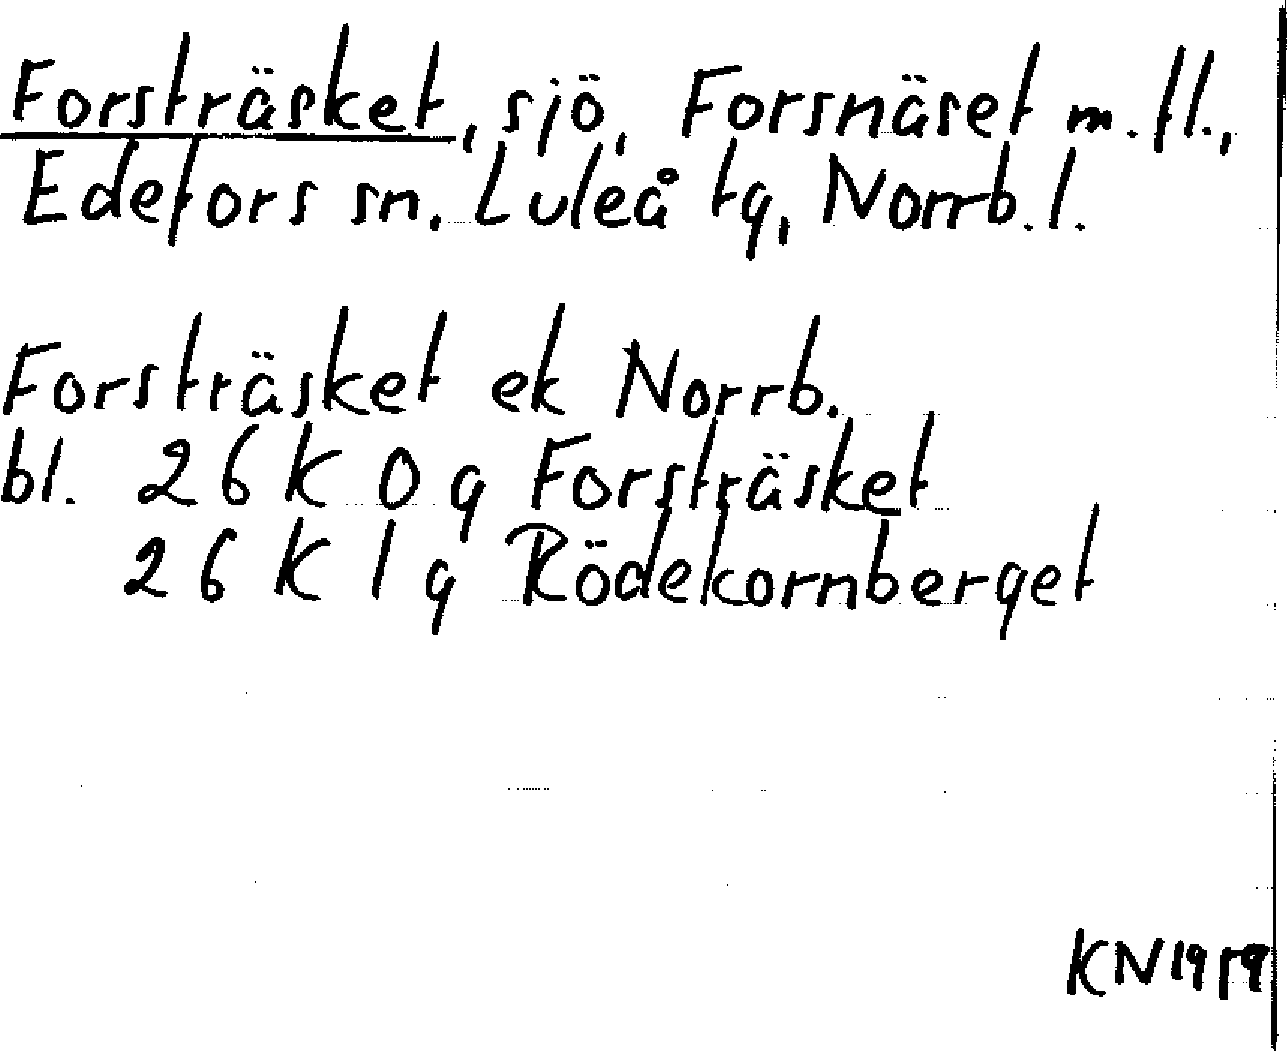 Forsträsket, sjö, Forsnäset m. fl.,
Edefors sn. Luleå tg, Norrb. l.
Forsträsket ek Norrb.
bl. 26 K 0 g Forsträsket
26 K 1 g Rödekornberget
KN 1979